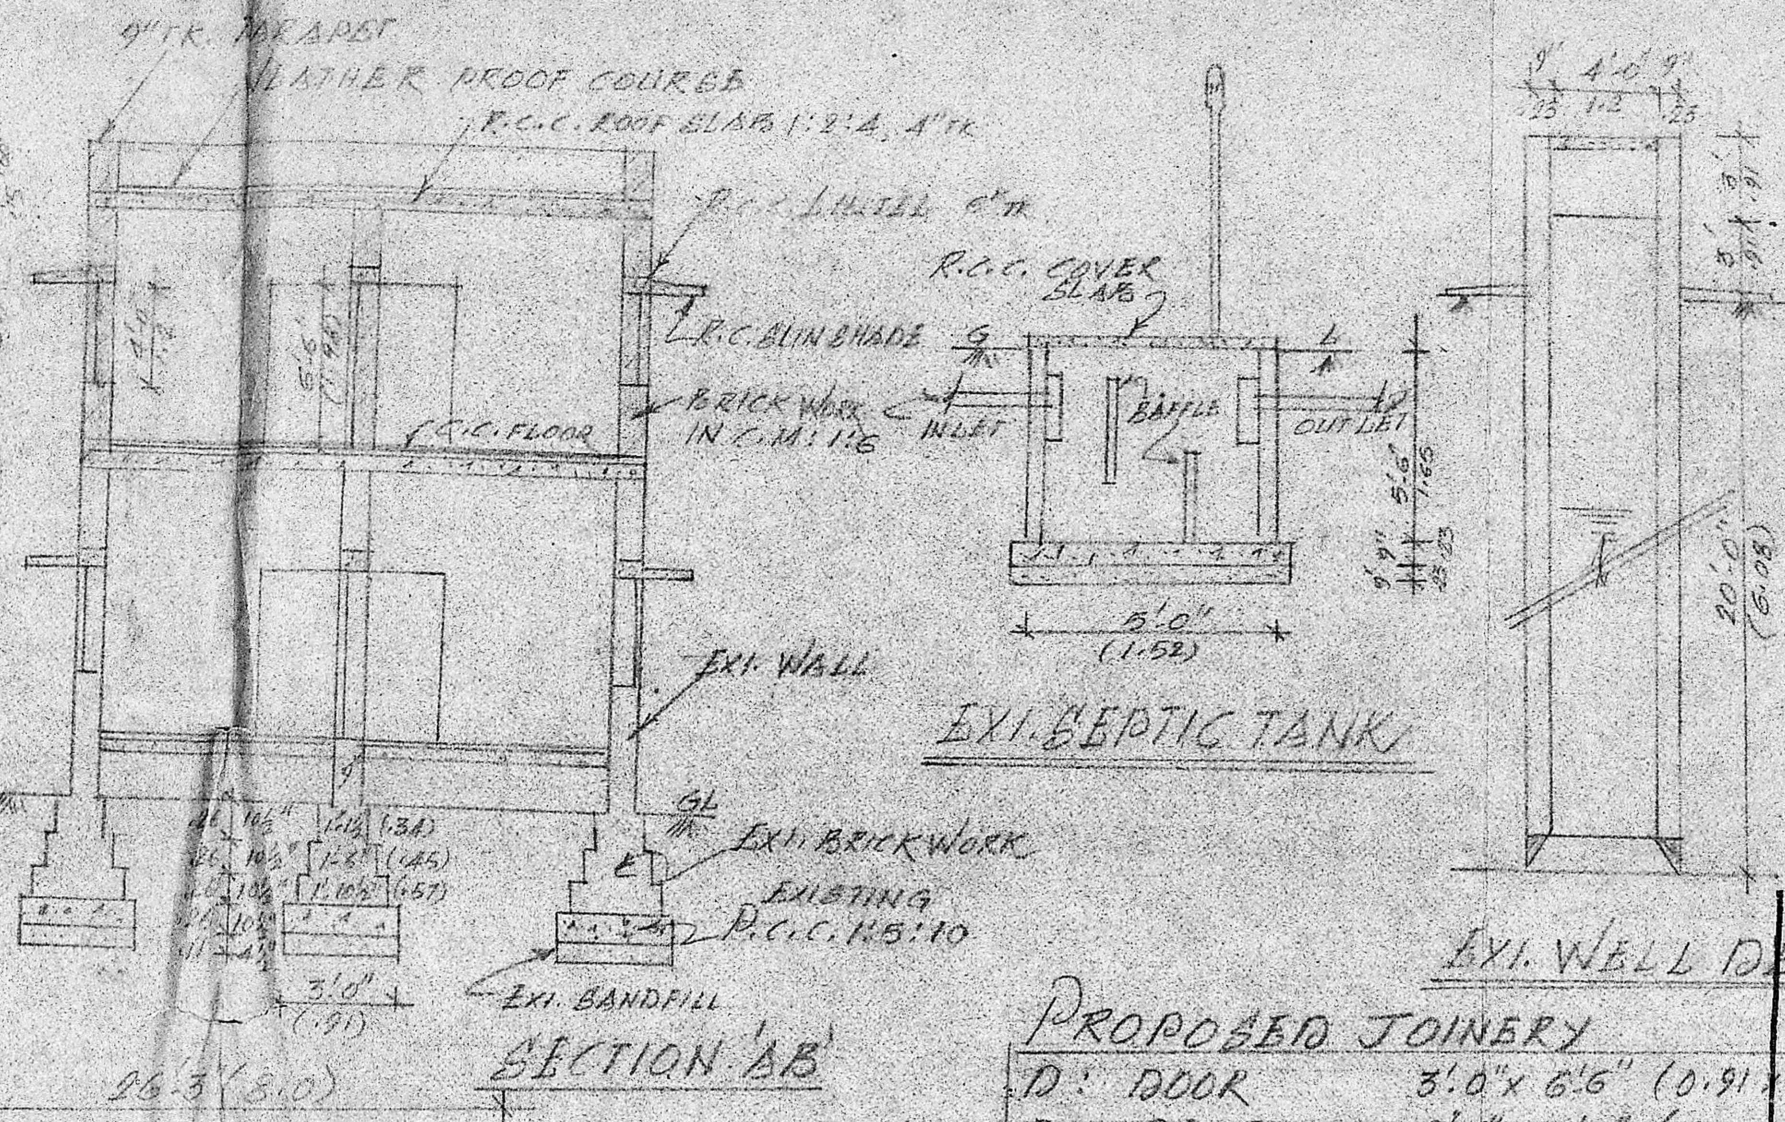 9" TK. PARAPET
WEATHER PROOF COURSE
R.C.C. ROOF SLAB 1:2:4, 4" TK
R.C.C. LINTEL 6" TK
R.C. SUNSHADE
BRICK WORK
IN C.M: 1:6
C.C. FLOOR
4'.0"
1.2
6'.6"
(1.98)
EXI. WALL
GL
EXI. BRICK WORK
EXISTING
P.C.C. 1:5:10
EXI. SANDFILL
9"
10½" 1'.1½ (.34)
10½" 1'.6" (.45)
10½" 1'.10½" (.57)
10½"
.11 4½"
3'.0"
(.91)
SECTION 'AB'
26'.3" (8.0)
R.C.C. COVER
SLAB
G L
INLET
BAFFLE
OUTLET
5'.6"
1.65
9" 9"
.23 .23
5'.0"
(1.52)
EXI. SEPTIC TANK
9" 4'.0" 9"
.23 1.2 .23
3'
.91
3'
.91
20'.0"
(6.08)
EXI. WELL
PROPOSED JOINERY
D: DOOR 3'.0" x 6'.6" (0.91